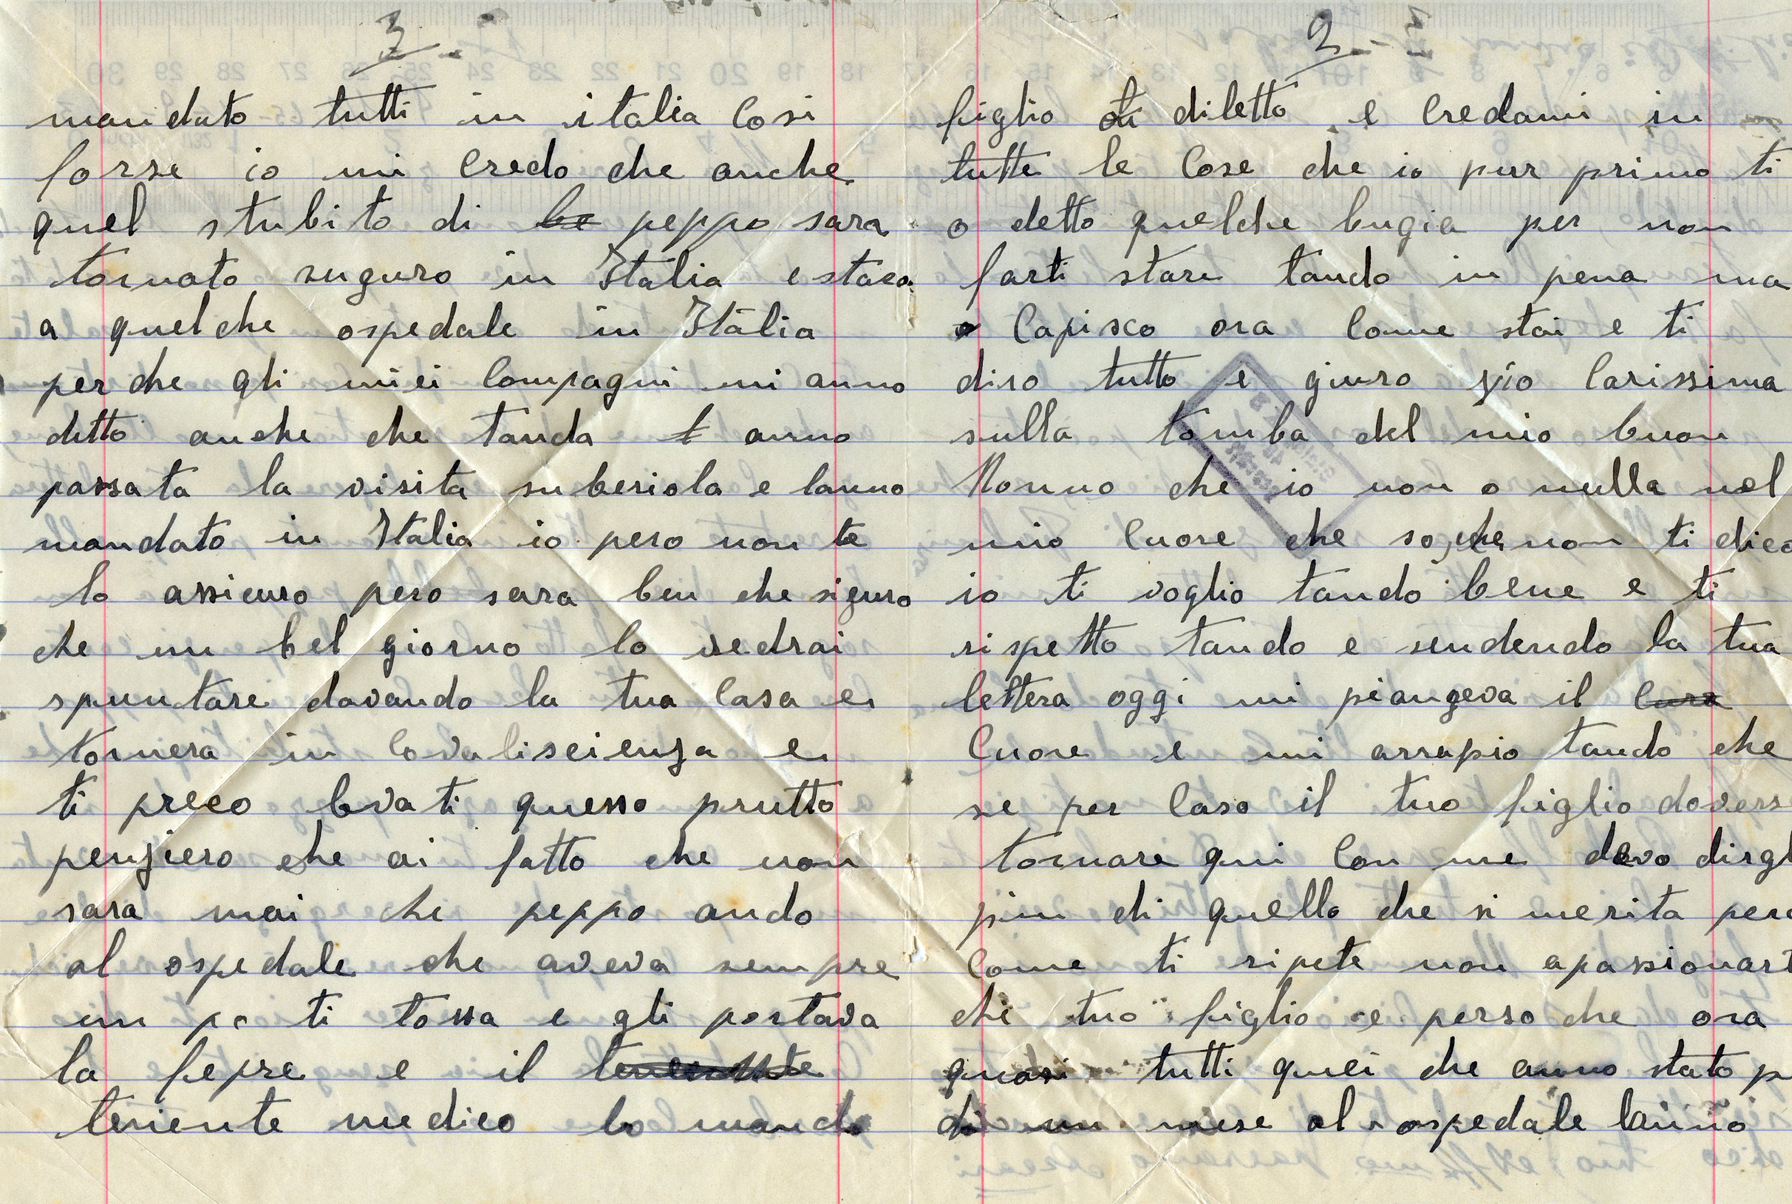 2-
figlio di diletto e credami in
tutte le cose che io pur primo ti
o detto quelche bugia per non
farti stare tando in pena ma
capisco ora come stai e ti
diro tutto e giuro zio carissima
sulla tomba del mio buon
Nonno che io non o nulla nel
mio cuore che so che non ti dico
io ti voglio tando bene e ti
rispetto tando e sendendo la tua
lettera oggi mi piangeva il cura
cuore e mi arrapio tando che
se per caso il tuo figlio dovers
tornare qui con me devo dirgl
piu di quello che si merita pero
come ti ripete non apassionart
che tuo figlio e perso che ora
quasi tutti quei che anno stato p
di un mese al ospedale lanno
3-
mandato tutti in italia cosi
forse io mi credo che anche
quel stubito di be peppo sara
tornato suguro in Italia e stara
a quelche ospedale in Italia
perche gli miei compagni mi anno
ditto anche che tanda t anno
passata la visita suberiola e lanno
mandato in Italia io pero non te
lo assicuro pero sara ben che siguro
che un bel giorno lo vedrai
spuntare davando la tua casa e
tornera in covaliscienza e
ti preco levati quesso prutto
penziero che ai fatto che non
sara mai che peppo ando
al ospedale che aveva sempre
un po ti tossa e gli portava
la fepre e il
teniente medico lo mando